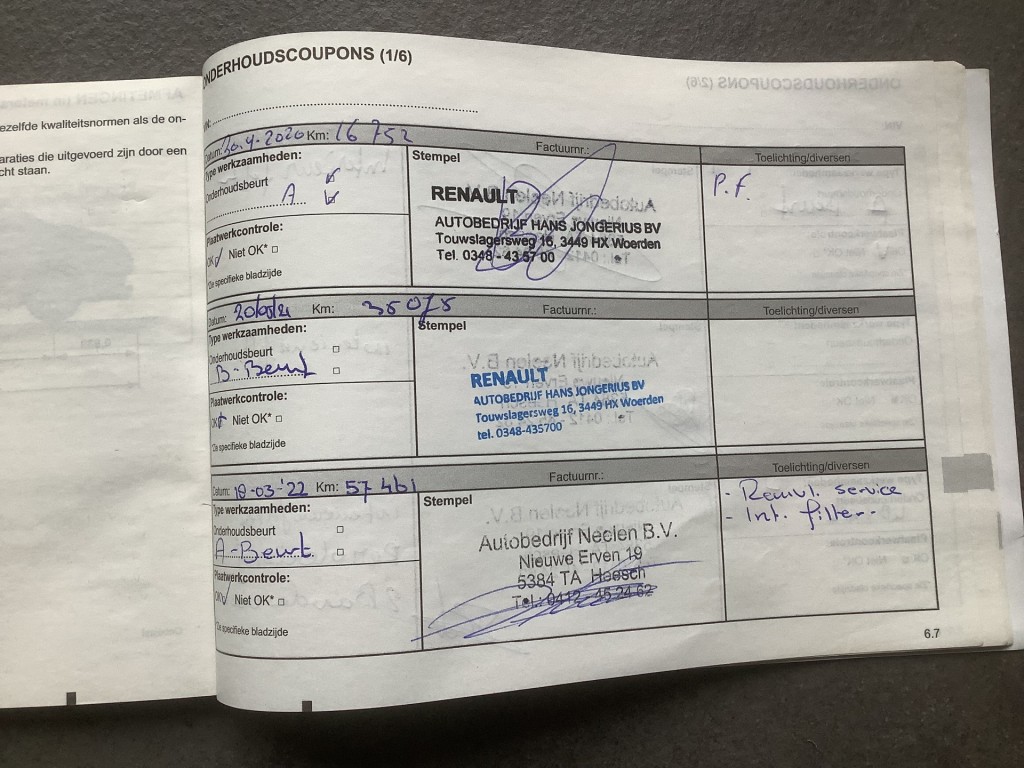 ezelfde kwaliteitsnormen als de on-
araties die uitgevoerd zijn door een
cht staan.
ONDERHOUDSCOUPONS (1/6)
VIN:
Datum: 30.4-2020 Km: 16 752
Factuurnr.:
Toelichting/diversen
Type werkzaamheden:
Onderhoudsbeurt
A
Plaatwerkcontrole:
OK Niet OK*
*Zie specifieke bladzijde
Stempel
RENAULT
AUTOBEDRIJF HANS JONGERIUS BV
Touwslagersweg 16, 3449 HX Woerden
Tel. 0348 - 43 57 00
P.F.
Datum: Km: 35075
Factuurnr.:
Toelichting/diversen
Type werkzaamheden:
Onderhoudsbeurt
B-Beurt
Plaatwerkcontrole:
OK Niet OK*
*Zie specifieke bladzijde
Stempel
RENAULT
AUTOBEDRIJF HANS JONGERIUS BV
Touwslagersweg 16, 3449 HX Woerden
tel. 0348-435700
Datum: 18-03-'22 Km: 57461
Factuurnr.:
Toelichting/diversen
Type werkzaamheden:
Onderhoudsbeurt
A-Beurt
Plaatwerkcontrole:
OK Niet OK*
*Zie specifieke bladzijde
Stempel
Autobedrijf Neelen B.V.
Nieuwe Erven 19
5384 TA Heesch
Tel.: 0412 - 45 24 62
- Remvl. service
- Int. filter
6.7